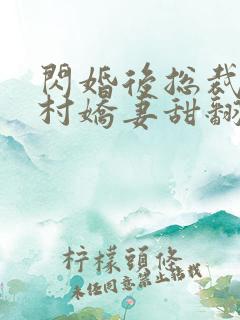 閃婚後总裁
村嬌妻甜翻
柠檬頭條
未经同意禁止转载